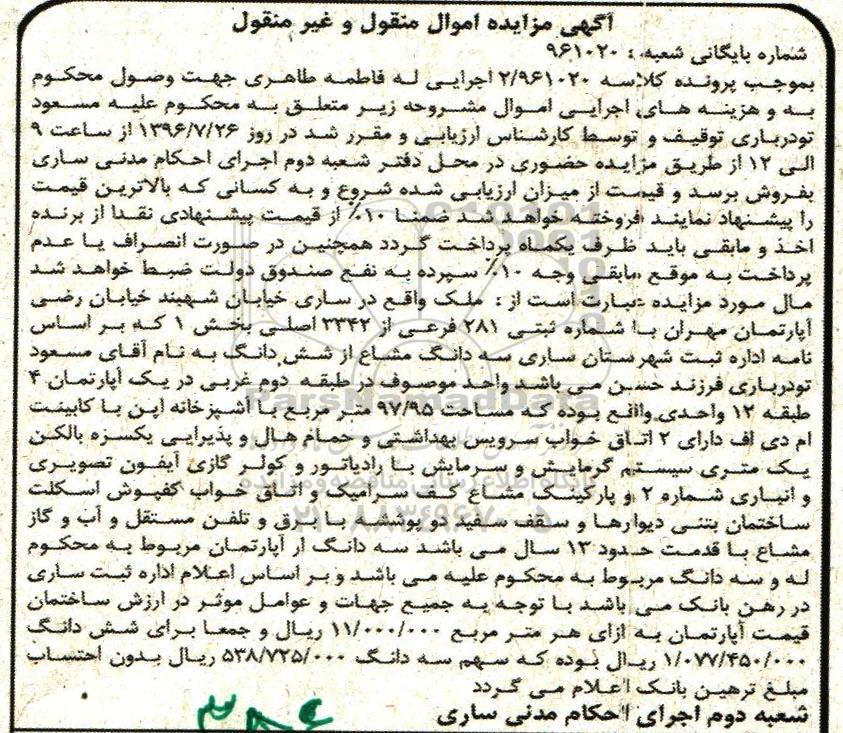 آگهی مزایده اموال منقول و غیر منقول
شماره بایگانی شعبه : ۹۶۱۰۲۰
بموجب پرونده کلاسه ۲/۹۶۱۰۲۰ اجرایی له فاطمه طاهری جهت وصول محکوم
به و هزینه های اجرایی اموال مشروحه زیر متعلق به محکوم علیه مسعود
تودرباری توقیف و توسط کارشناس ارزیابی و مقرر شد در روز ۱۳۹۶/۷/۲۶ از ساعت ۹
الی ۱۲ از طریق مزایده حضوری در محل دفتر شعبه دوم اجرای احکام مدنی ساری
بفروش برسد و قیمت از میزان ارزیابی شده شروع و به کسانی که بالاترین قیمت
را پیشنهاد نمایند فروخته خواهد شد ضمنا ۱۰٪ از قیمت پیشنهادی نقدا از برنده
اخذ و مابقی باید ظرف یکماه پرداخت گردد همچنین در صورت انصراف یا عدم
پرداخت به موقع مابقی وجه ۱۰٪ سپرده به نفع صندوق دولت ضبط خواهد شد
مال مورد مزایده عبارت است از : ملک واقع در ساری خیابان شهبند خیابان رضی
آپارتمان مهران با شماره ثبتی ۲۸۱ فرعی از ۳۳۴۲ اصلی بخش ۱ که بر اساس
نامه اداره ثبت شهرستان ساری سه دانگ مشاع از شش دانگ به نام آقای مسعود
تودرباری فرزند حسن می باشد واحد موصوف در طبقه دوم غربی در یک آپارتمان ۴
طبقه ۱۲ واحدی واقع بوده که مساحت ۹۷/۹۵ متر مربع با آشپزخانه اپن با کابینت
ام دی اف دارای ۲ اتاق خواب سرویس بهداشتی و حمام هال و پذیرایی یکسره بالکن
یک متری سیستم گرمایش و سرمایش با رادیاتور و کولر گازی آیفون تصویری
و انباری شماره ۲ و پارکینگ مشاع کف سرامیک و اتاق خواب کفپوش اسکلت
ساختمان بتنی دیوارها و سقف سفید دو پوششه با برق و تلفن مستقل و آب و گاز
مشاع با قدمت حدود ۱۳ سال می باشد سه دانگ از آپارتمان مربوط به محکوم
له و سه دانگ مربوط به محکوم علیه می باشد و بر اساس اعلام اداره ثبت ساری
در رهن بانک می باشد با توجه به جمیع جهات و عوامل موثر در ارزش ساختمان
قیمت آپارتمان به ازای هر متر مربع ۱۱/۰۰۰/۰۰۰ ریال و جمعا برای شش دانگ
۱/۰۷۷/۴۵۰/۰۰۰ ریال بوده که سهم سه دانگ ۵۳۸/۷۲۵/۰۰۰ ریال بدون احتساب
مبلغ ترهین بانک اعلام می گردد
شعبه دوم اجرای احکام مدنی ساری
ParsNamadData
پایگاه اطلاع رسانی مناقصه و مزایده